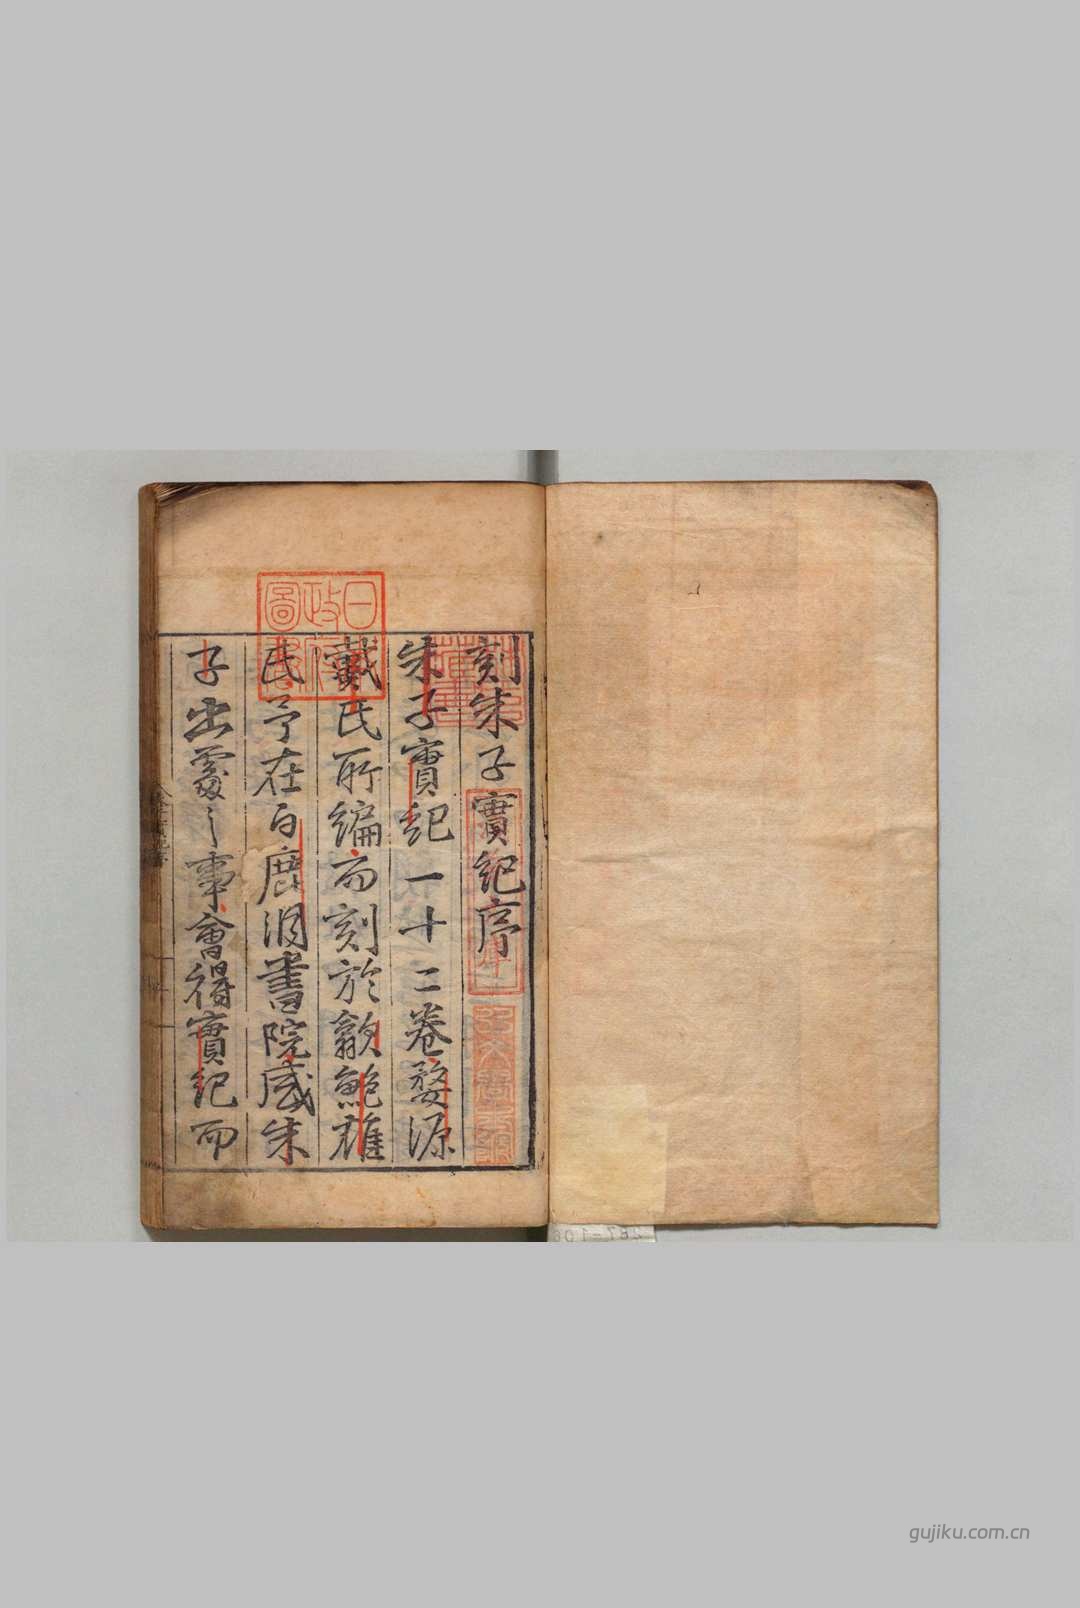 刻朱子實紀序
朱子實紀一十二卷婺源
戴氏所編而刻於歙鮑雄
氏予在白鹿洞書院感朱
子出處之事會得實紀而
日本
政府
圖書
gujiku.com.cn